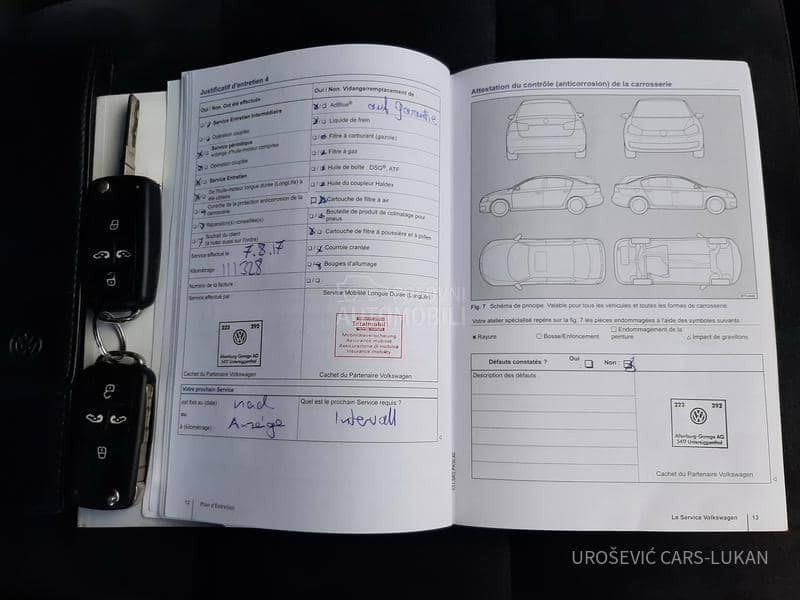 Justificatif d'entretien 4
Oui / Non. Ont été effectués
Service Entretien Intermédiaire
Opération couplée
Service périodique
vidange d'huile-moteur comprise
Opération couplée
Service Entretien
De l'huile-moteur longue durée (LongLife) a
été utilisée
Contrôle de la protection anticorrosion de la
carrosserie
Réparation(s) conseillée(s)
Souhait du client
(à noter aussi sur l'ordre)
Service effectué le 7.8.17
Kilométrage : 111328
Numéro de la facture :
Service effectué par
223 292
Altenburg-Garage AG
5417 Untersiggenthal
Cachet du Partenaire Volkswagen
Oui / Non. Vidange/remplacement de
AdBlue® auf Garantie
Liquide de frein
Filtre à carburant (gazole)
Filtre à gaz
Huile de boîte : DSG®, ATF
Huile du coupleur Haldex
Cartouche de filtre à air
Bouteille de produit de colmatage pour
pneus
Cartouche de filtre à poussière et à pollen
Courroie crantée
Bougies d'allumage
Service Mobilité Longue Durée (LongLife)
Totalmobil
Mobilitätsversicherung
Assurance mobilité
Assicurazione di mobilità
Insurance mobility
Cachet du Partenaire Volkswagen
Votre prochain Service
est fixé au (date)
ou
à (kilométrage) :
Quel est le prochain Service requis ?
Intervall
12 Plan d'Entretien
Attestation du contrôle (anticorrosion) de la carrosserie
Fig. 7 Schéma de principe. Valable pour tous les véhicules et toutes les formes de carrosserie.
Votre atelier spécialisé repère sur la fig. 7 les pièces endommagées à l'aide des symboles suivants :
× Rayure
○ Bosse/Enfoncement
□ Endommagement de la
peinture
△ Impact de gravillons
Défauts constatés ? Oui Non :
Description des défauts :
223 292
Altenburg-Garage AG
5417 Untersiggenthal
Cachet du Partenaire Volkswagen
Le Service Volkswagen 13
UROŠEVIĆ CARS-LUKAN